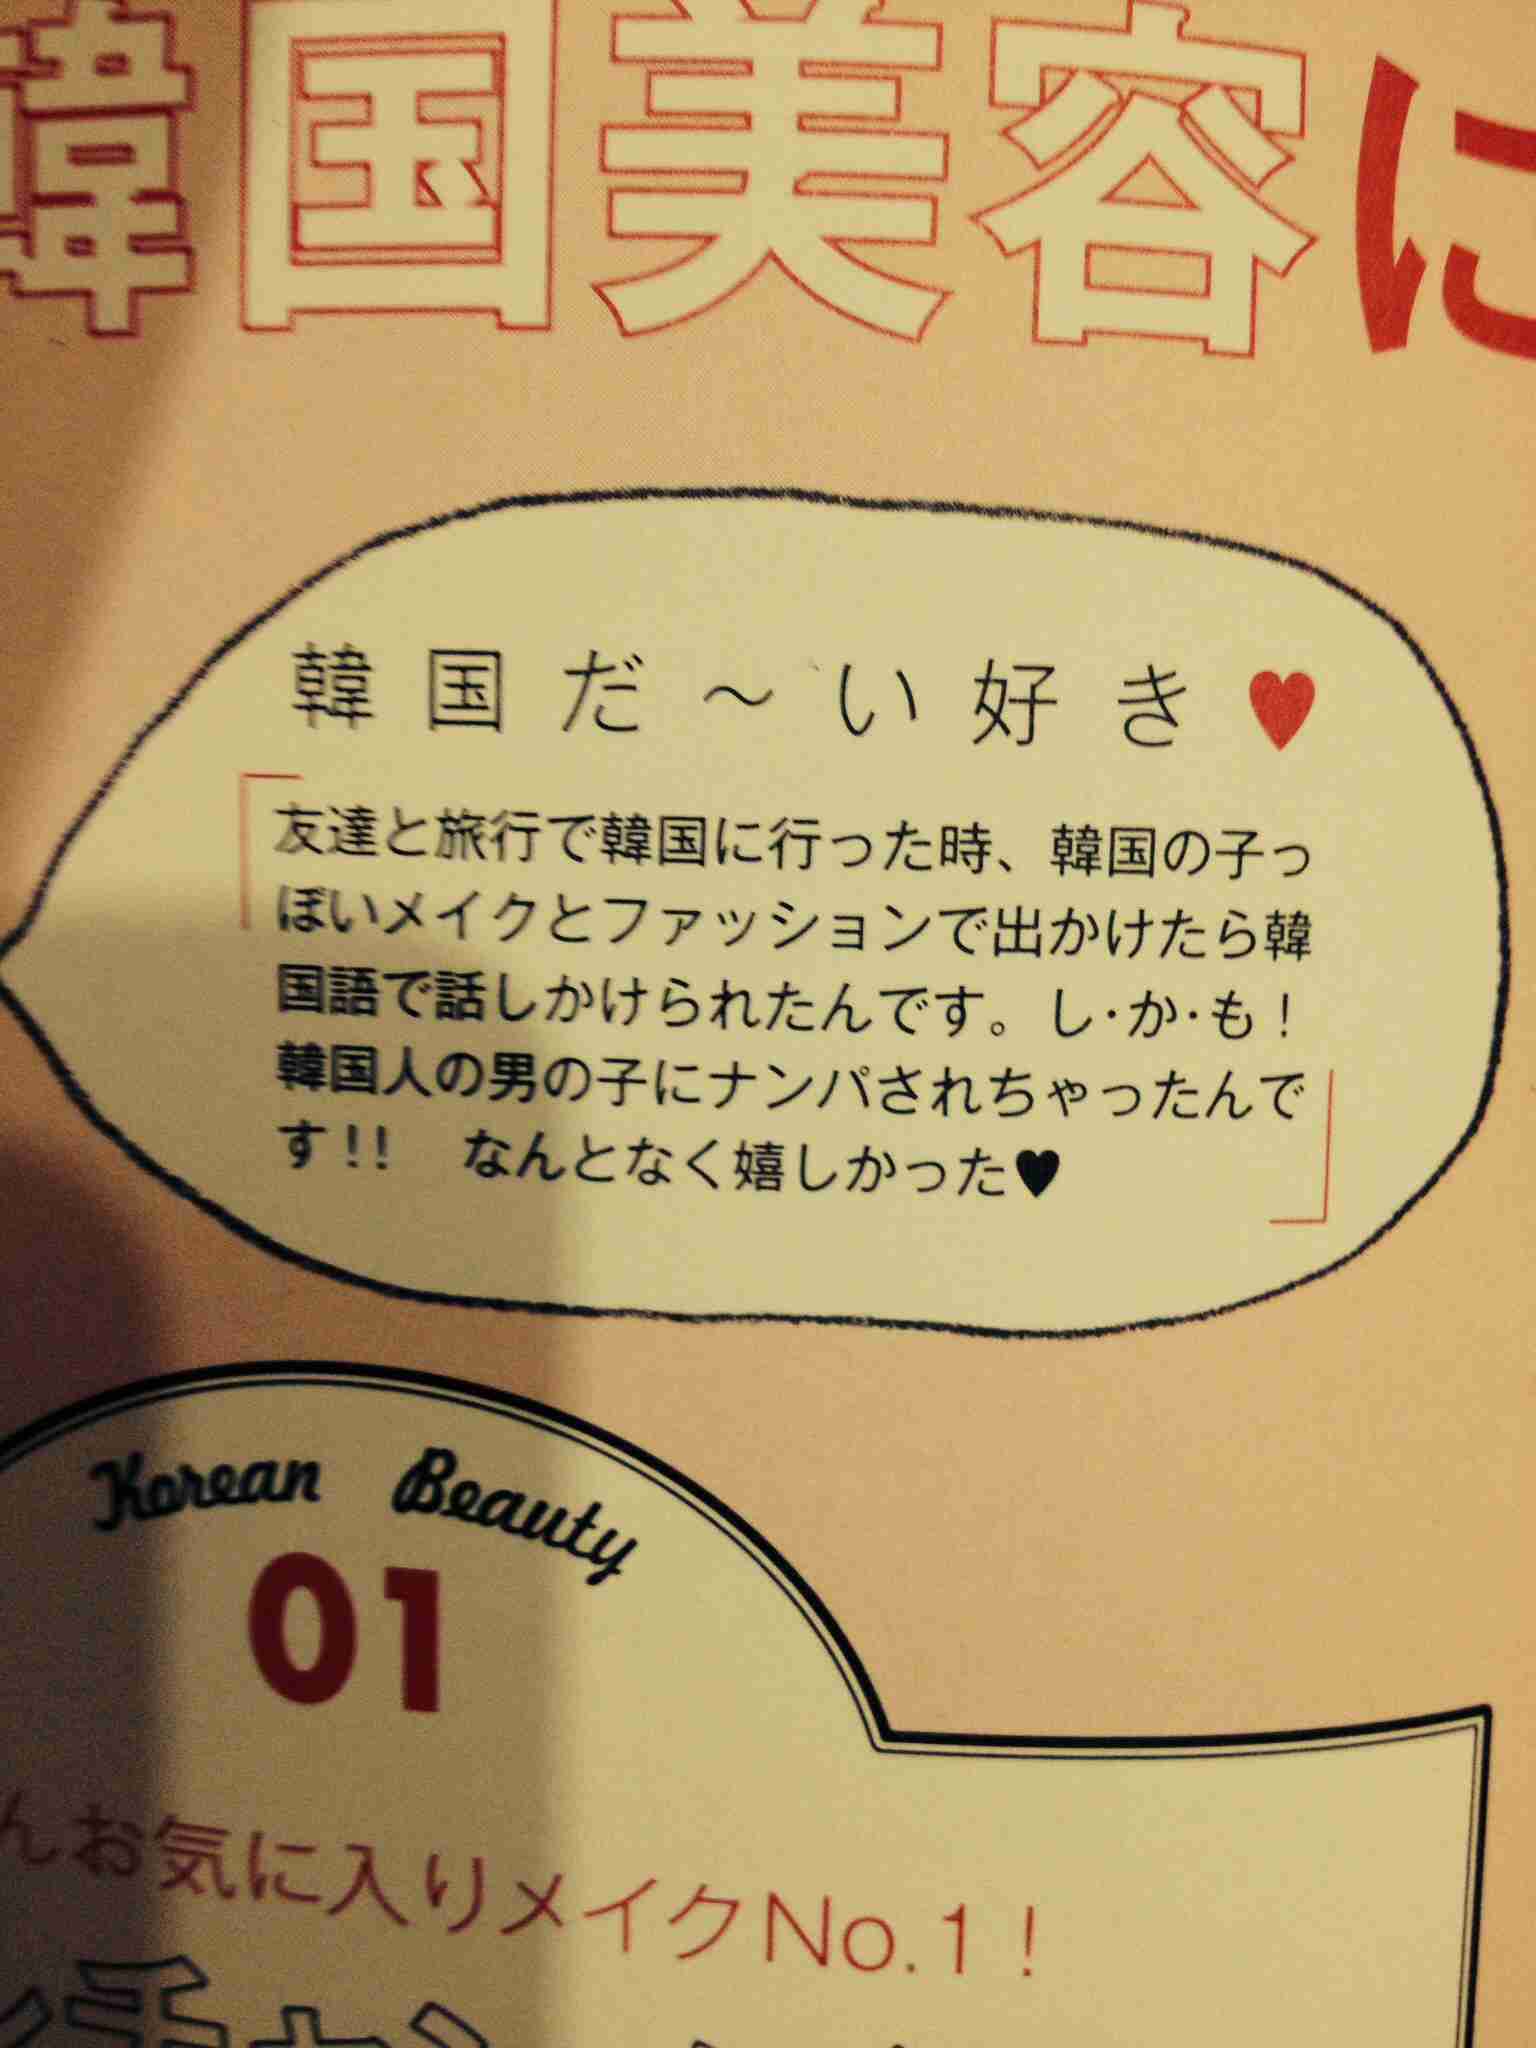 韓国美容に
韓国だ〜い好き♥
「友達と旅行で韓国に行った時、韓国の子っ
ぽいメイクとファッションで出かけたら韓
国語で話しかけられたんです。し・か・も！
韓国人の男の子にナンパされちゃったんで
す！！　なんとなく嬉しかった♥」
Korean Beauty
01
んお気に入りメイクNo.1！